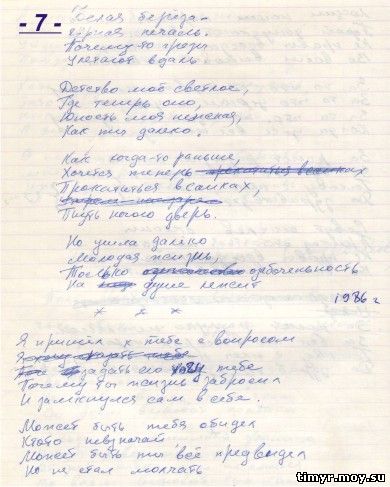 - 7 -
Белая береза -
Ярная печаль.
Почему-то грёзы
Улетают вдаль
Детство моё светлое,
Где теперь оно,
Юность моя нежная,
Как ты далеко.
Как когда-то раньше,
Хочется теперь прокатиться в санках
Прокатиться в санках,
Пнуть ногою дверь.
Но ушла далеко
Молодая жизнь,
Только озабоченность
На душе лежит
1986 г
* * *
Я пришёл к тебе с вопросом
Я хочу задать тебе
задать его хочу тебе
Почему ты жизнь забросил
И замкнулся сам в себе.
Может быть тебя обидел
Ктото невзначай
Может быть ты всё предвидел
Но не стал молчать
timyr.moy.su